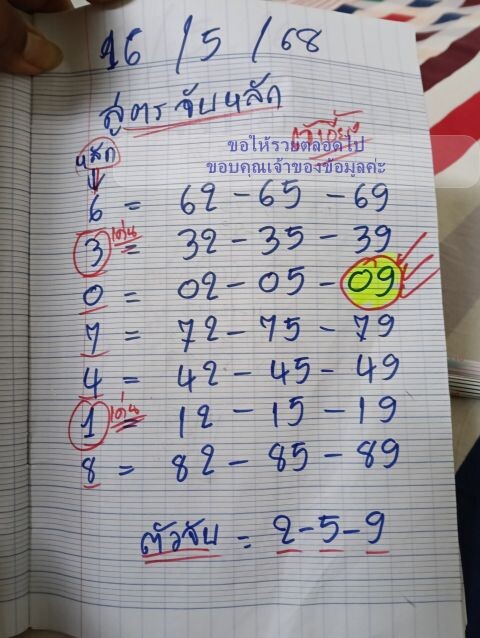 16 / 5 / 68
สูตรจับหลัก
หลัก
ขอให้รวยตลอดไป
ขอบคุณเจ้าของข้อมูลค่ะ
6 = 62 - 65 - 69
3 เด่น = 32 - 35 - 39
0 = 02 - 05 - 09
7 = 72 - 75 - 79
4 = 42 - 45 - 49
1 เด่น = 12 - 15 - 19
8 = 82 - 85 - 89
ตัวจับ = 2 - 5 - 9